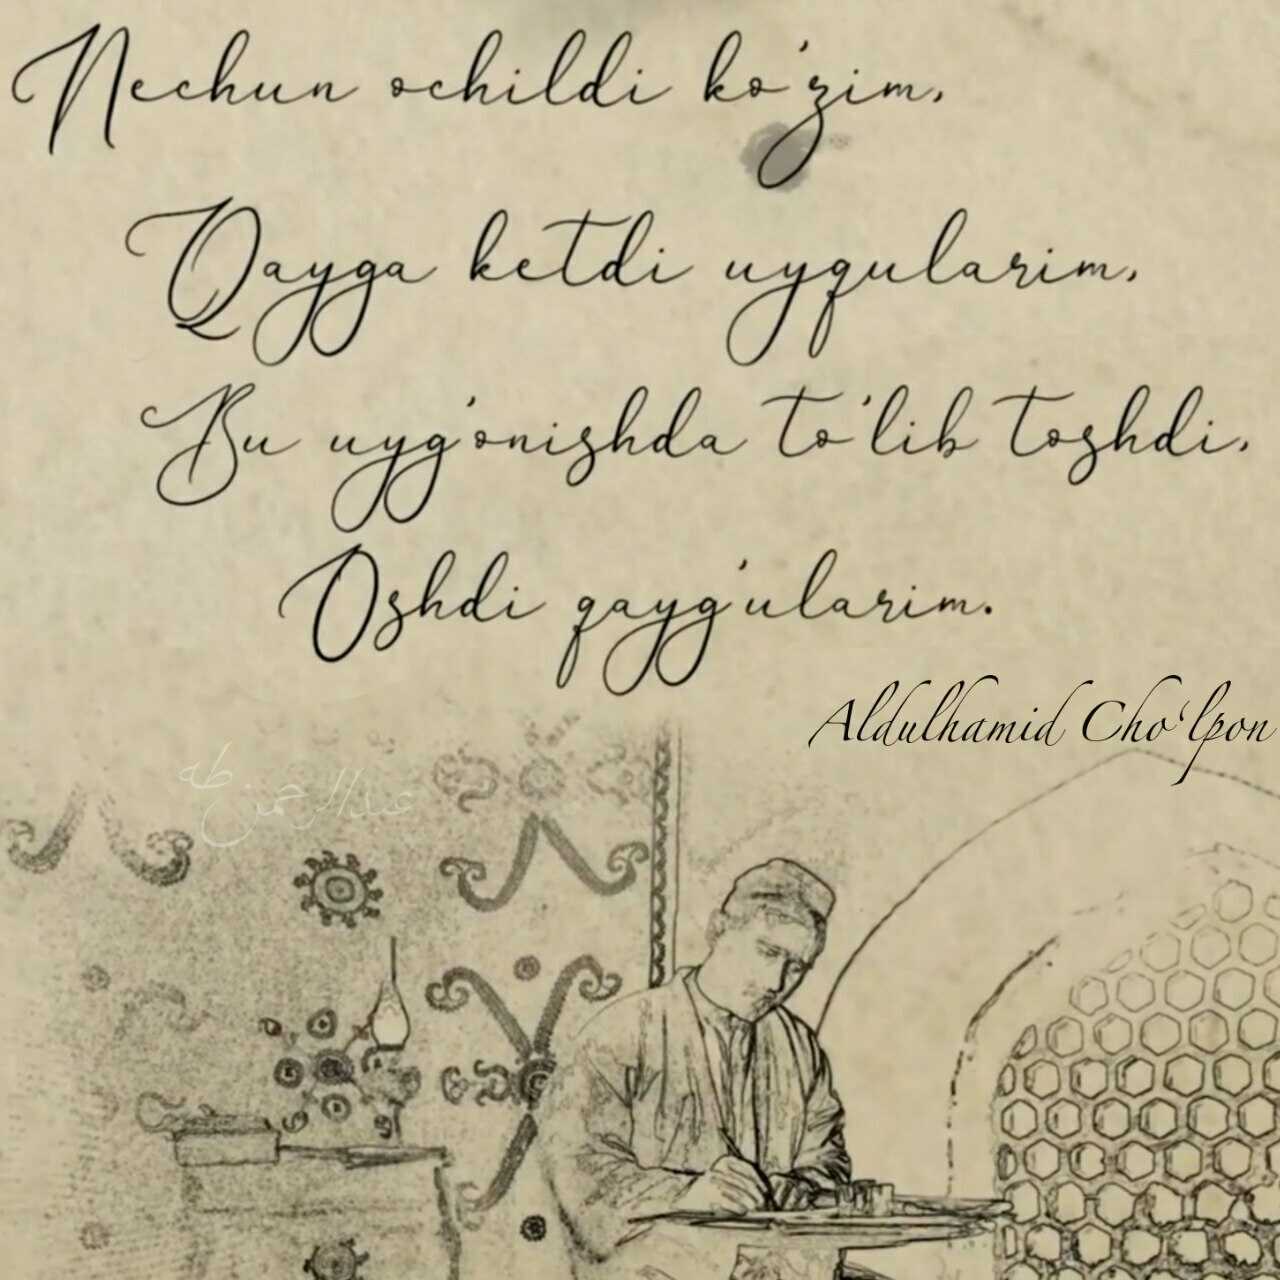 Nechun ochildi ko'zim,
Qayga ketdi uyqularim,
Bu uyg'onishda to'lib toshdi,
Oshdi qayg'ularim.
Aldulhamid Cho'lpon
عبدالرحمن طه